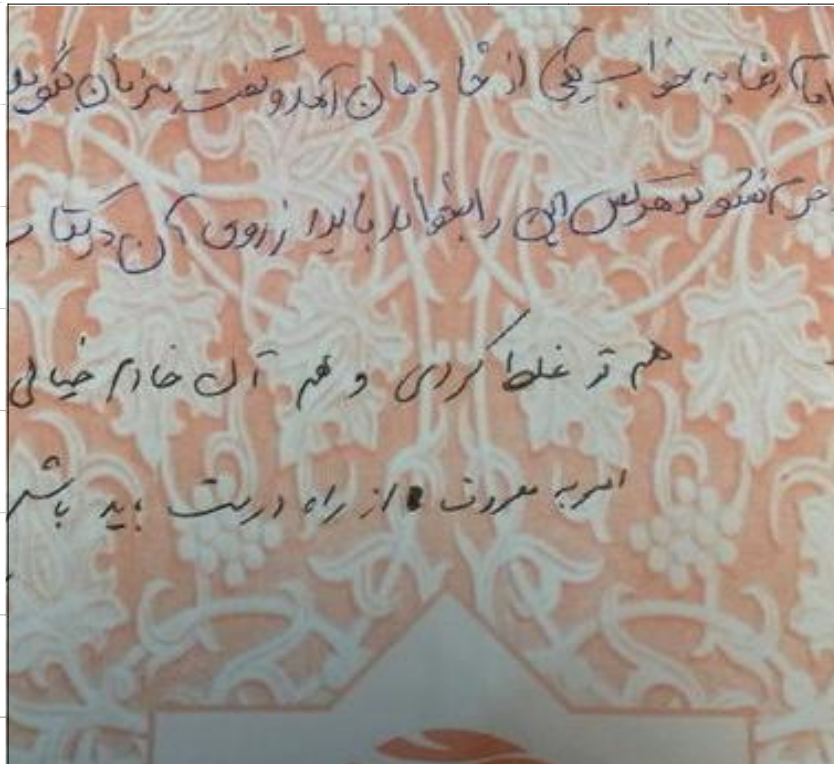 امام رضا به خواب یکی از خادمان آمد و گفت به زنان بگوید
حرم نشوند هرکس این را بخواند باید از روی آن در کتاب
هم تو غلط کردی و هم آن خادم خیالی
امر به معروف از راه درست باید باشد